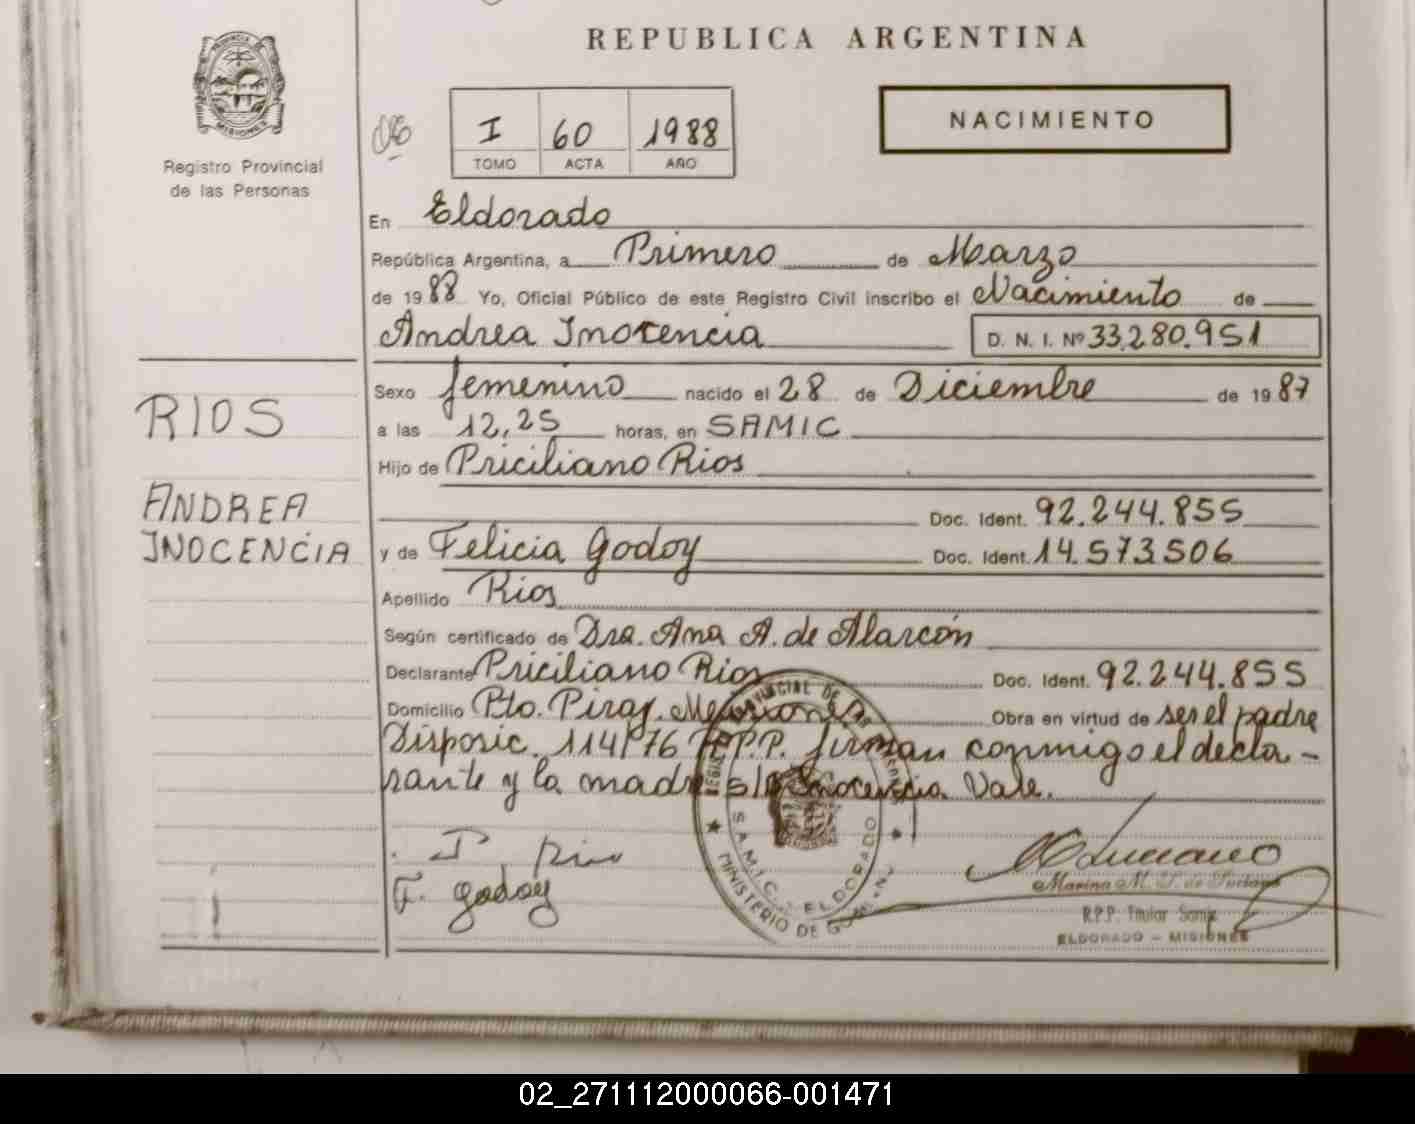 REPUBLICA ARGENTINA
PROVINCIA DE
MISIONES
Registro Provincial
de las Personas
I 60 1988
TOMO ACTA AÑO
NACIMIENTO
En Eldorado
República Argentina, a Primero de Marzo
de 1988 Yo, Oficial Público de este Registro Civil inscribo el Nacimiento de
Andrea Inocencia D. N. I. Nº 33.280.951
Sexo femenino nacido el 28 de Diciembre de 1987
a las 12,25 horas, en SAMIC
Hijo de Priciliano Rios
Doc. Ident. 92.244.855
y de Felicia Godoy Doc. Ident. 14.573506
Apellido Rios
Según certificado de Dra. Ana A. de Alarcón
Declarante Priciliano Rios Doc. Ident. 92.244.855
Domicilio Pto. Piray. Misiones Obra en virtud de ser el padre
Disposic. 114/76 R.P.P. firman conmigo el decla-
rante y la madre s/b Inocencia Vale.
RIOS
ANDREA
INOCENCIA
P. Rios
F. Godoy
S.A.M.I.C. ELDORADO
MINISTERIO DE
R.P.P. Titular Samic
ELDORADO - MISIONES
02_271112000066-001471